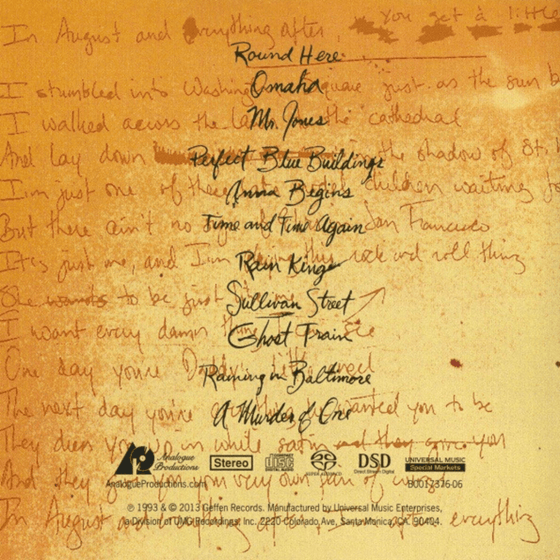 In August and everything after, you get a little
Round Here
I stumbled into Washington square just as the sun b
Omaha
I walked across the la the cathedral
Mr. Jones
And lay down the shadow of St.
Perfect Blue Buildings
I'm just one of these children waiting
Anna Begins
But there ain't no San Francisco
Time and Time Again
It's just me, and I'm this rock and roll thing
Rain King
She wants to be just
Sullivan Street
I want every damn
Ghost Train
One day you're
Raining in Baltimore
The next day you're wanted you to be
A Murder of One
They dress you up in white satin
AP Analogue Productions
Stereo
COMPACT disc DIGITAL AUDIO
SUPER AUDIO CD
DSD
Direct Stream Digital
UNIVERSAL MUSIC
Special Markets
AnalogueProductions.com
B0017376-06
And they your very own pair of
℗ 1993 & © 2013 Geffen Records. Manufactured by Universal Music Enterprises,
a Division of UMG Recordings, Inc. 2220 Colorado Ave., Santa Monica, CA. 90404.
In August and everything